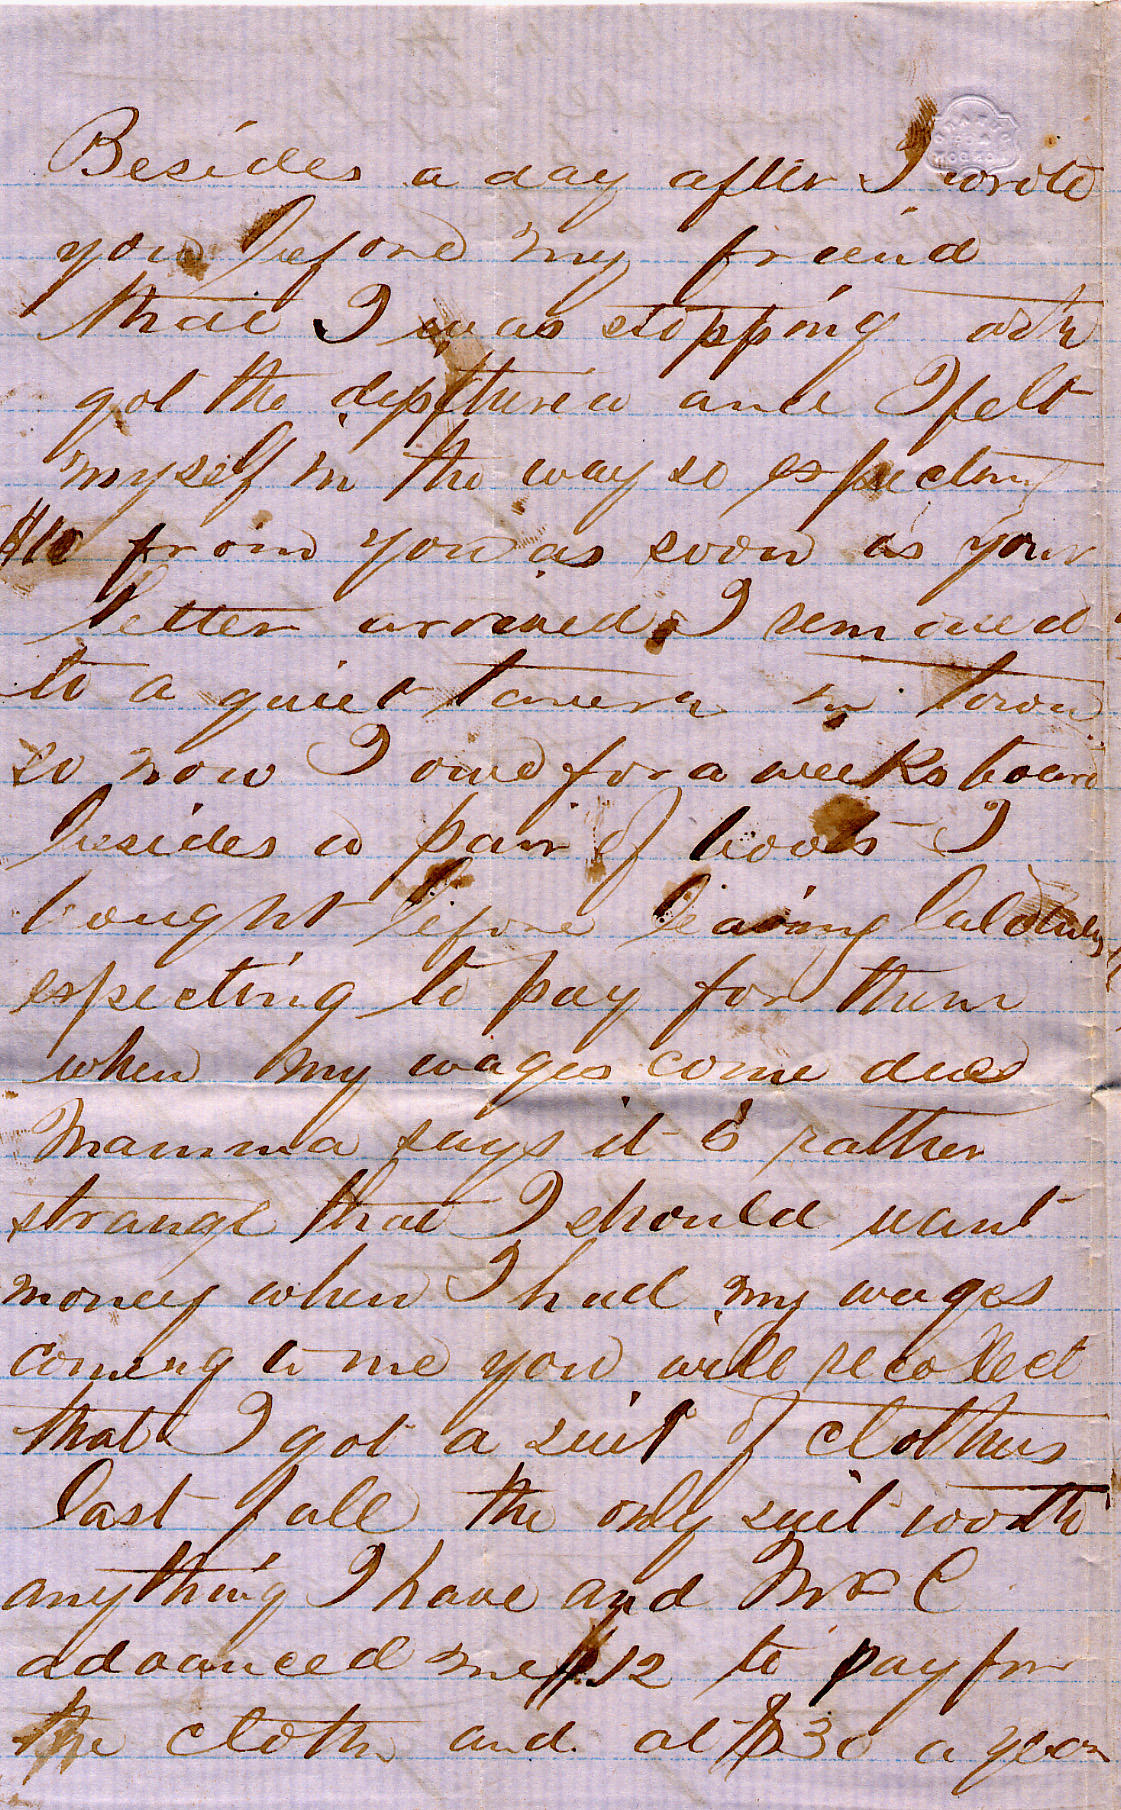 Besides a day after I wrote
you before my friend
that I was stopping with
got the diptheria and I felt
myself in the way so expecting
$10 from you as soon as your
letter arrived I removed
to a quiet tavern in town
so now I owe for a weeks board
besides a pair of boots I
bought before leaving
expecting to pay for them
when my wages come due
Mamma says it is rather
strange that I should want
money when I had my wages
coming to me you will recollect
that I got a suit of clothes
last fall the only suit worth
anything I have and Mr C
advanced me $12 to pay for
the cloth and at $30 a year